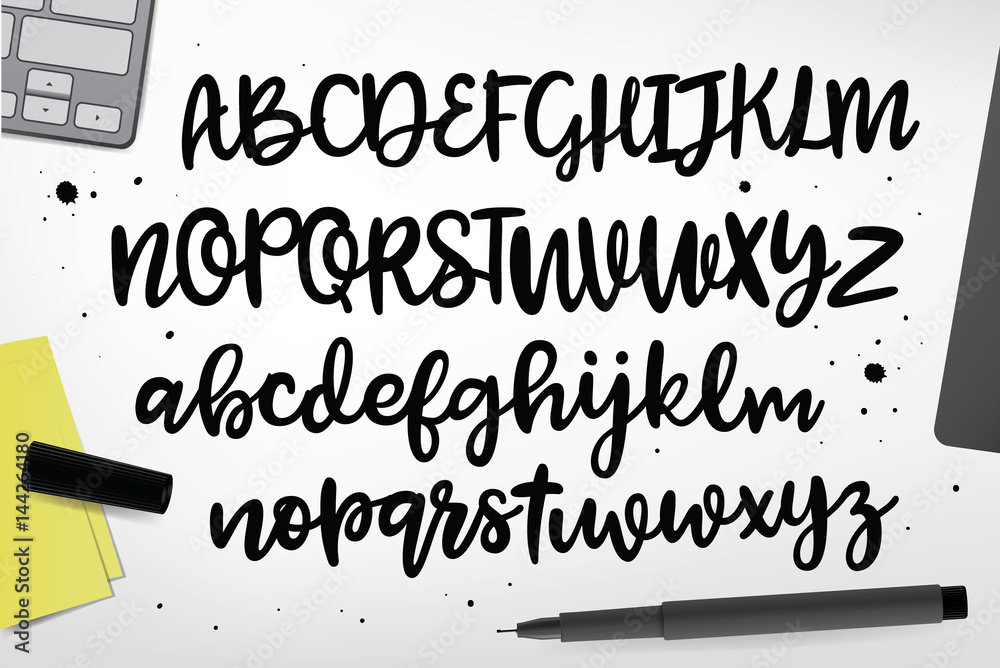 ABCDEFGHIJKLM
NOPQRSTUVWXYZ
abcdefghijklm
nopqrstuvwxyz
Adobe Stock | #144264180